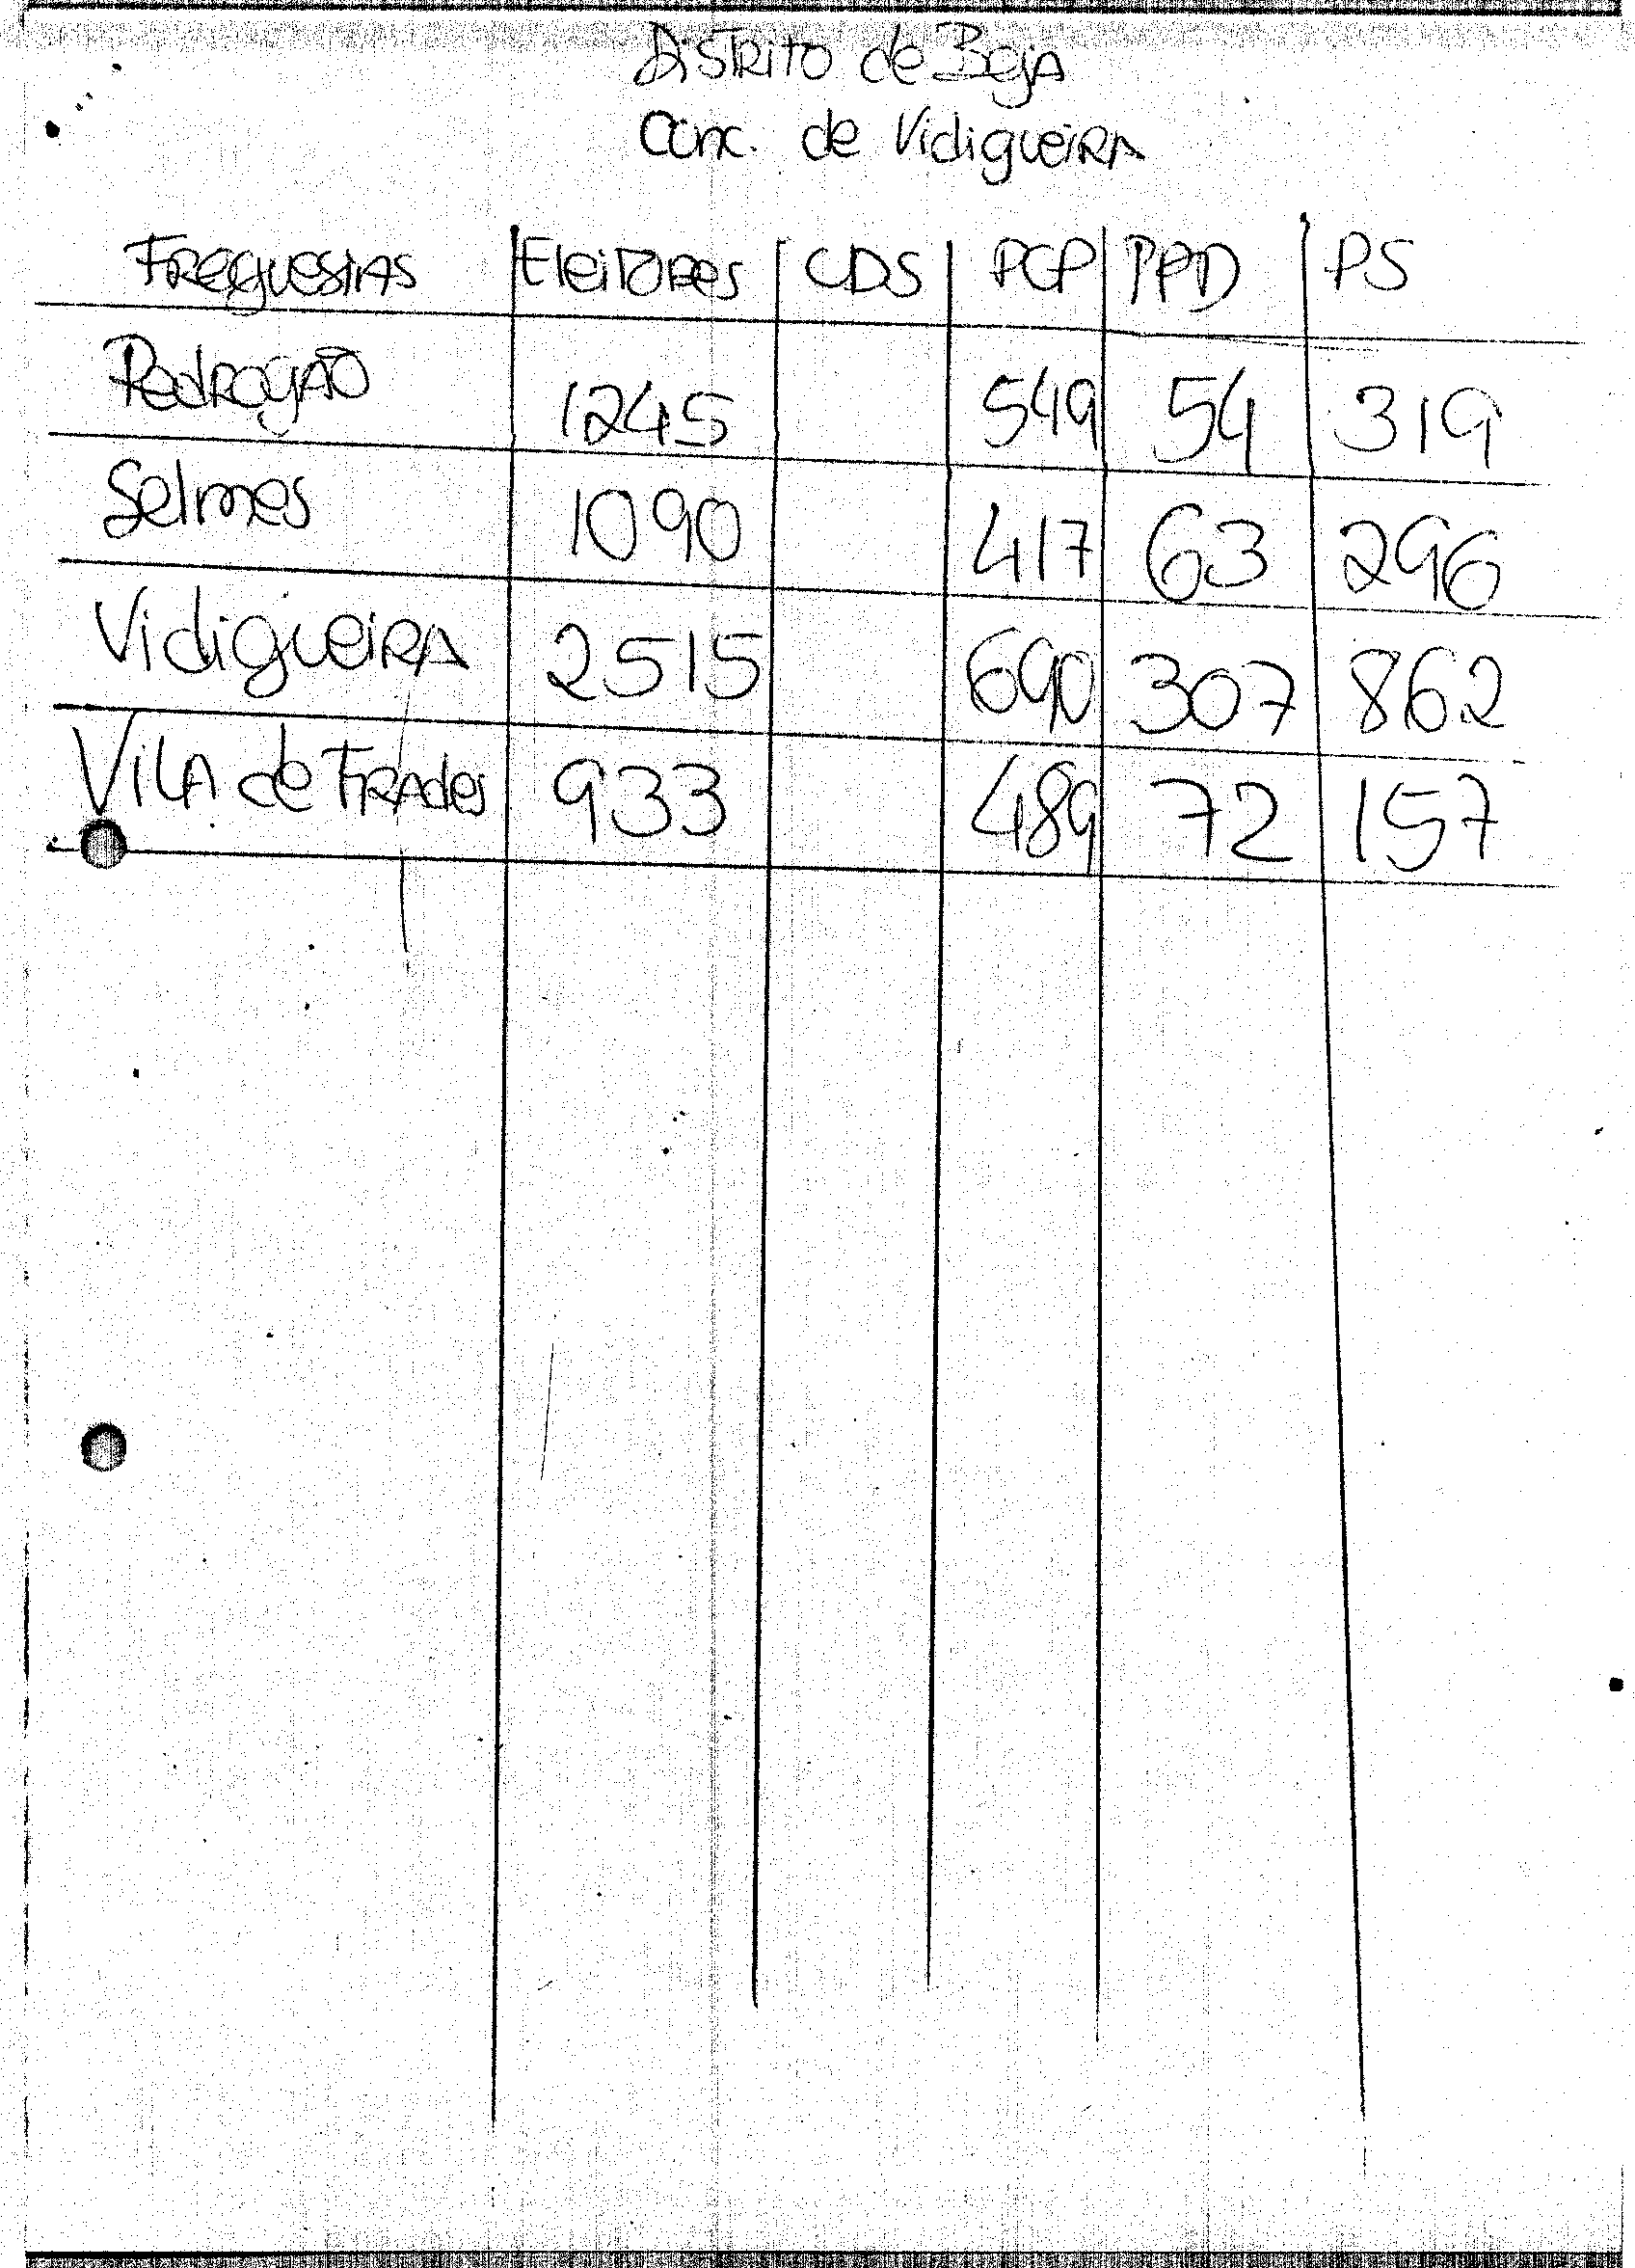 Distrito de Beja
Conc. de Vidigueira
Freguesias Eleitores CDS PCP PPD PS
Pedrogão 1245 549 54 319
Selmes 1090 417 63 296
Vidigueira 2515 690 307 862
Vila de Frades 933 489 72 157